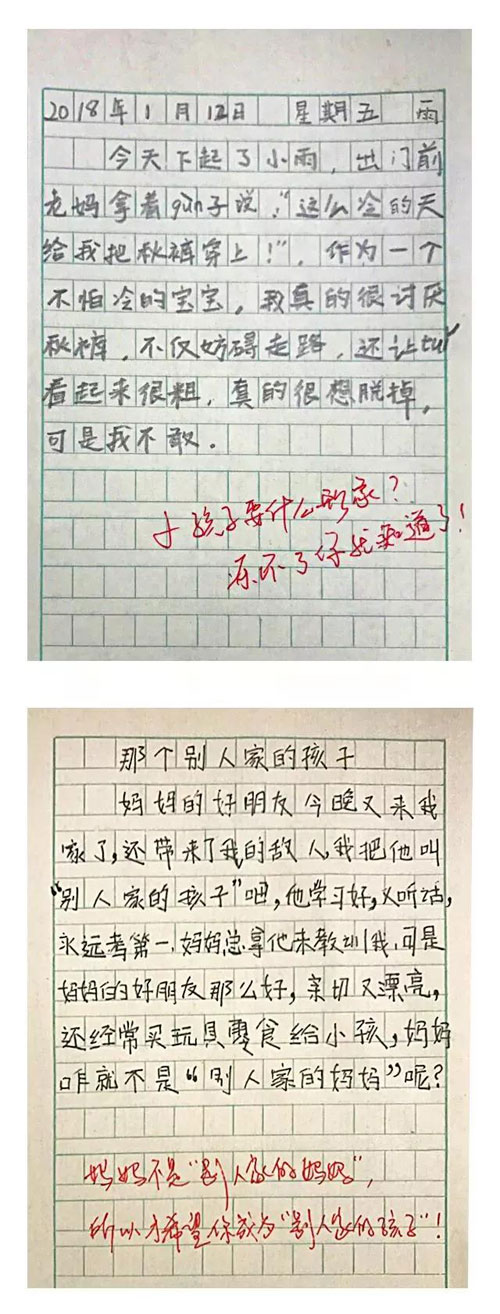 2018年1月12日 星期五 雨
今天下起了小雨，出门前
老妈拿着gùn子说，“这么冷的天
给我把秋裤穿上！”，作为一个
不怕冷的宝宝，我真的很讨厌
秋裤，不仅妨碍走路，还让tuǐ
看起来很粗，真的很想脱掉，
可是我不敢．
小孩子要什么形象？
冻坏了你就知道了！
那个别人家的孩子
妈妈的好朋友今晚又来我
家了，还带来了我的敌人，我把他叫
“别人家的孩子”吧，他学习好，又听话，
永远考第一，妈妈总拿他来教训我，可是
妈妈的好朋友那么好，亲切又漂亮，
还经常买玩具零食给小孩，妈妈
咋就不是“别人家的妈妈”呢？
妈妈不是“别人家的妈妈”，
所以才希望你成为“别人家的孩子”！